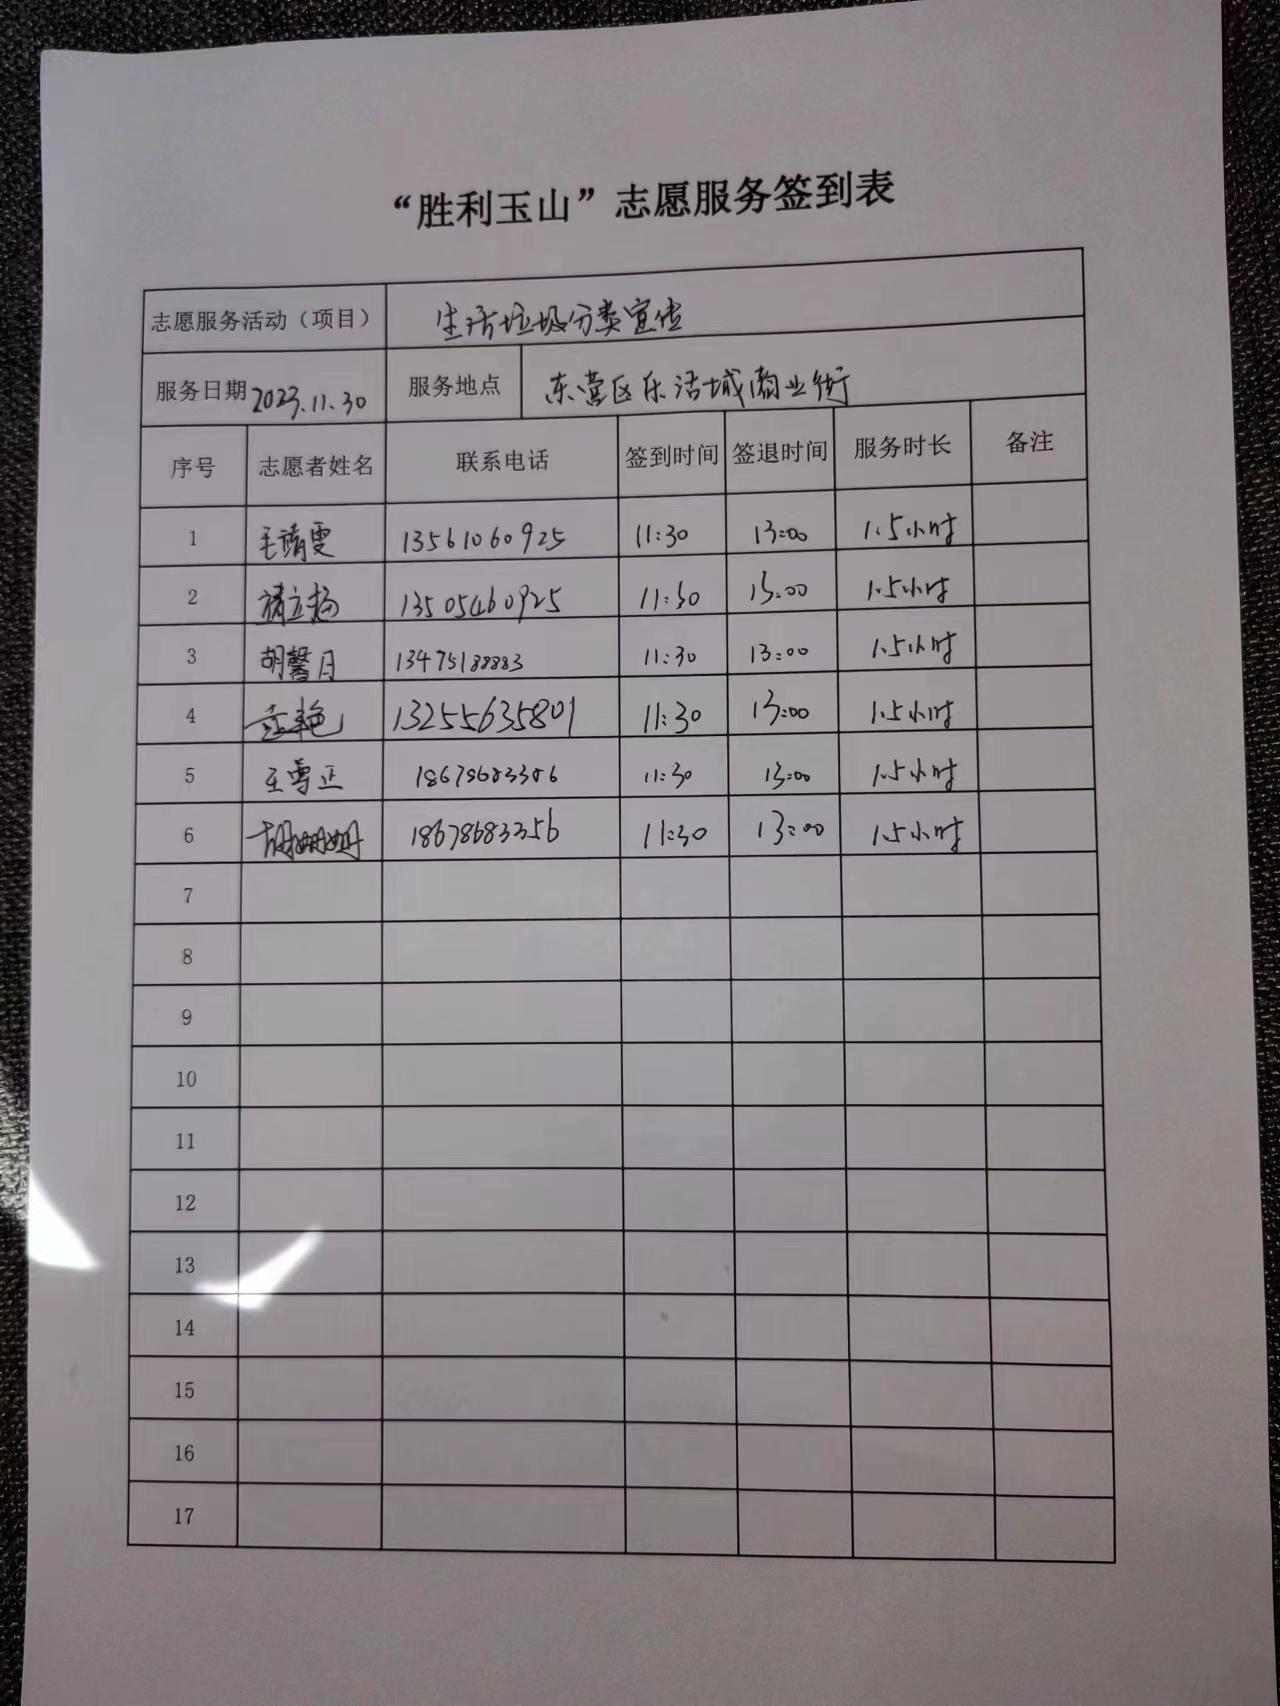 “胜利玉山”志愿服务签到表
志愿服务活动（项目） 生活垃圾分类宣传
服务日期 2023.11.30 服务地点 东营区乐活城商业街
序号 志愿者姓名 联系电话 签到时间 签退时间 服务时长 备注
1 毛靖雯 13561060925 11:30 13:00 1.5小时
2 褚立扬 13505460925 11:30 13:00 1.5小时
3 胡馨月 13475188883 11:30 13:00 1.5小时
4 13255635801 11:30 13:00 1.5小时
5 王雪正 11:30 13:00 1.5小时
6 胡姗姗 18678683356 11:30 13:00 1.5小时
7
8
9
10
11
12
13
14
15
16
17